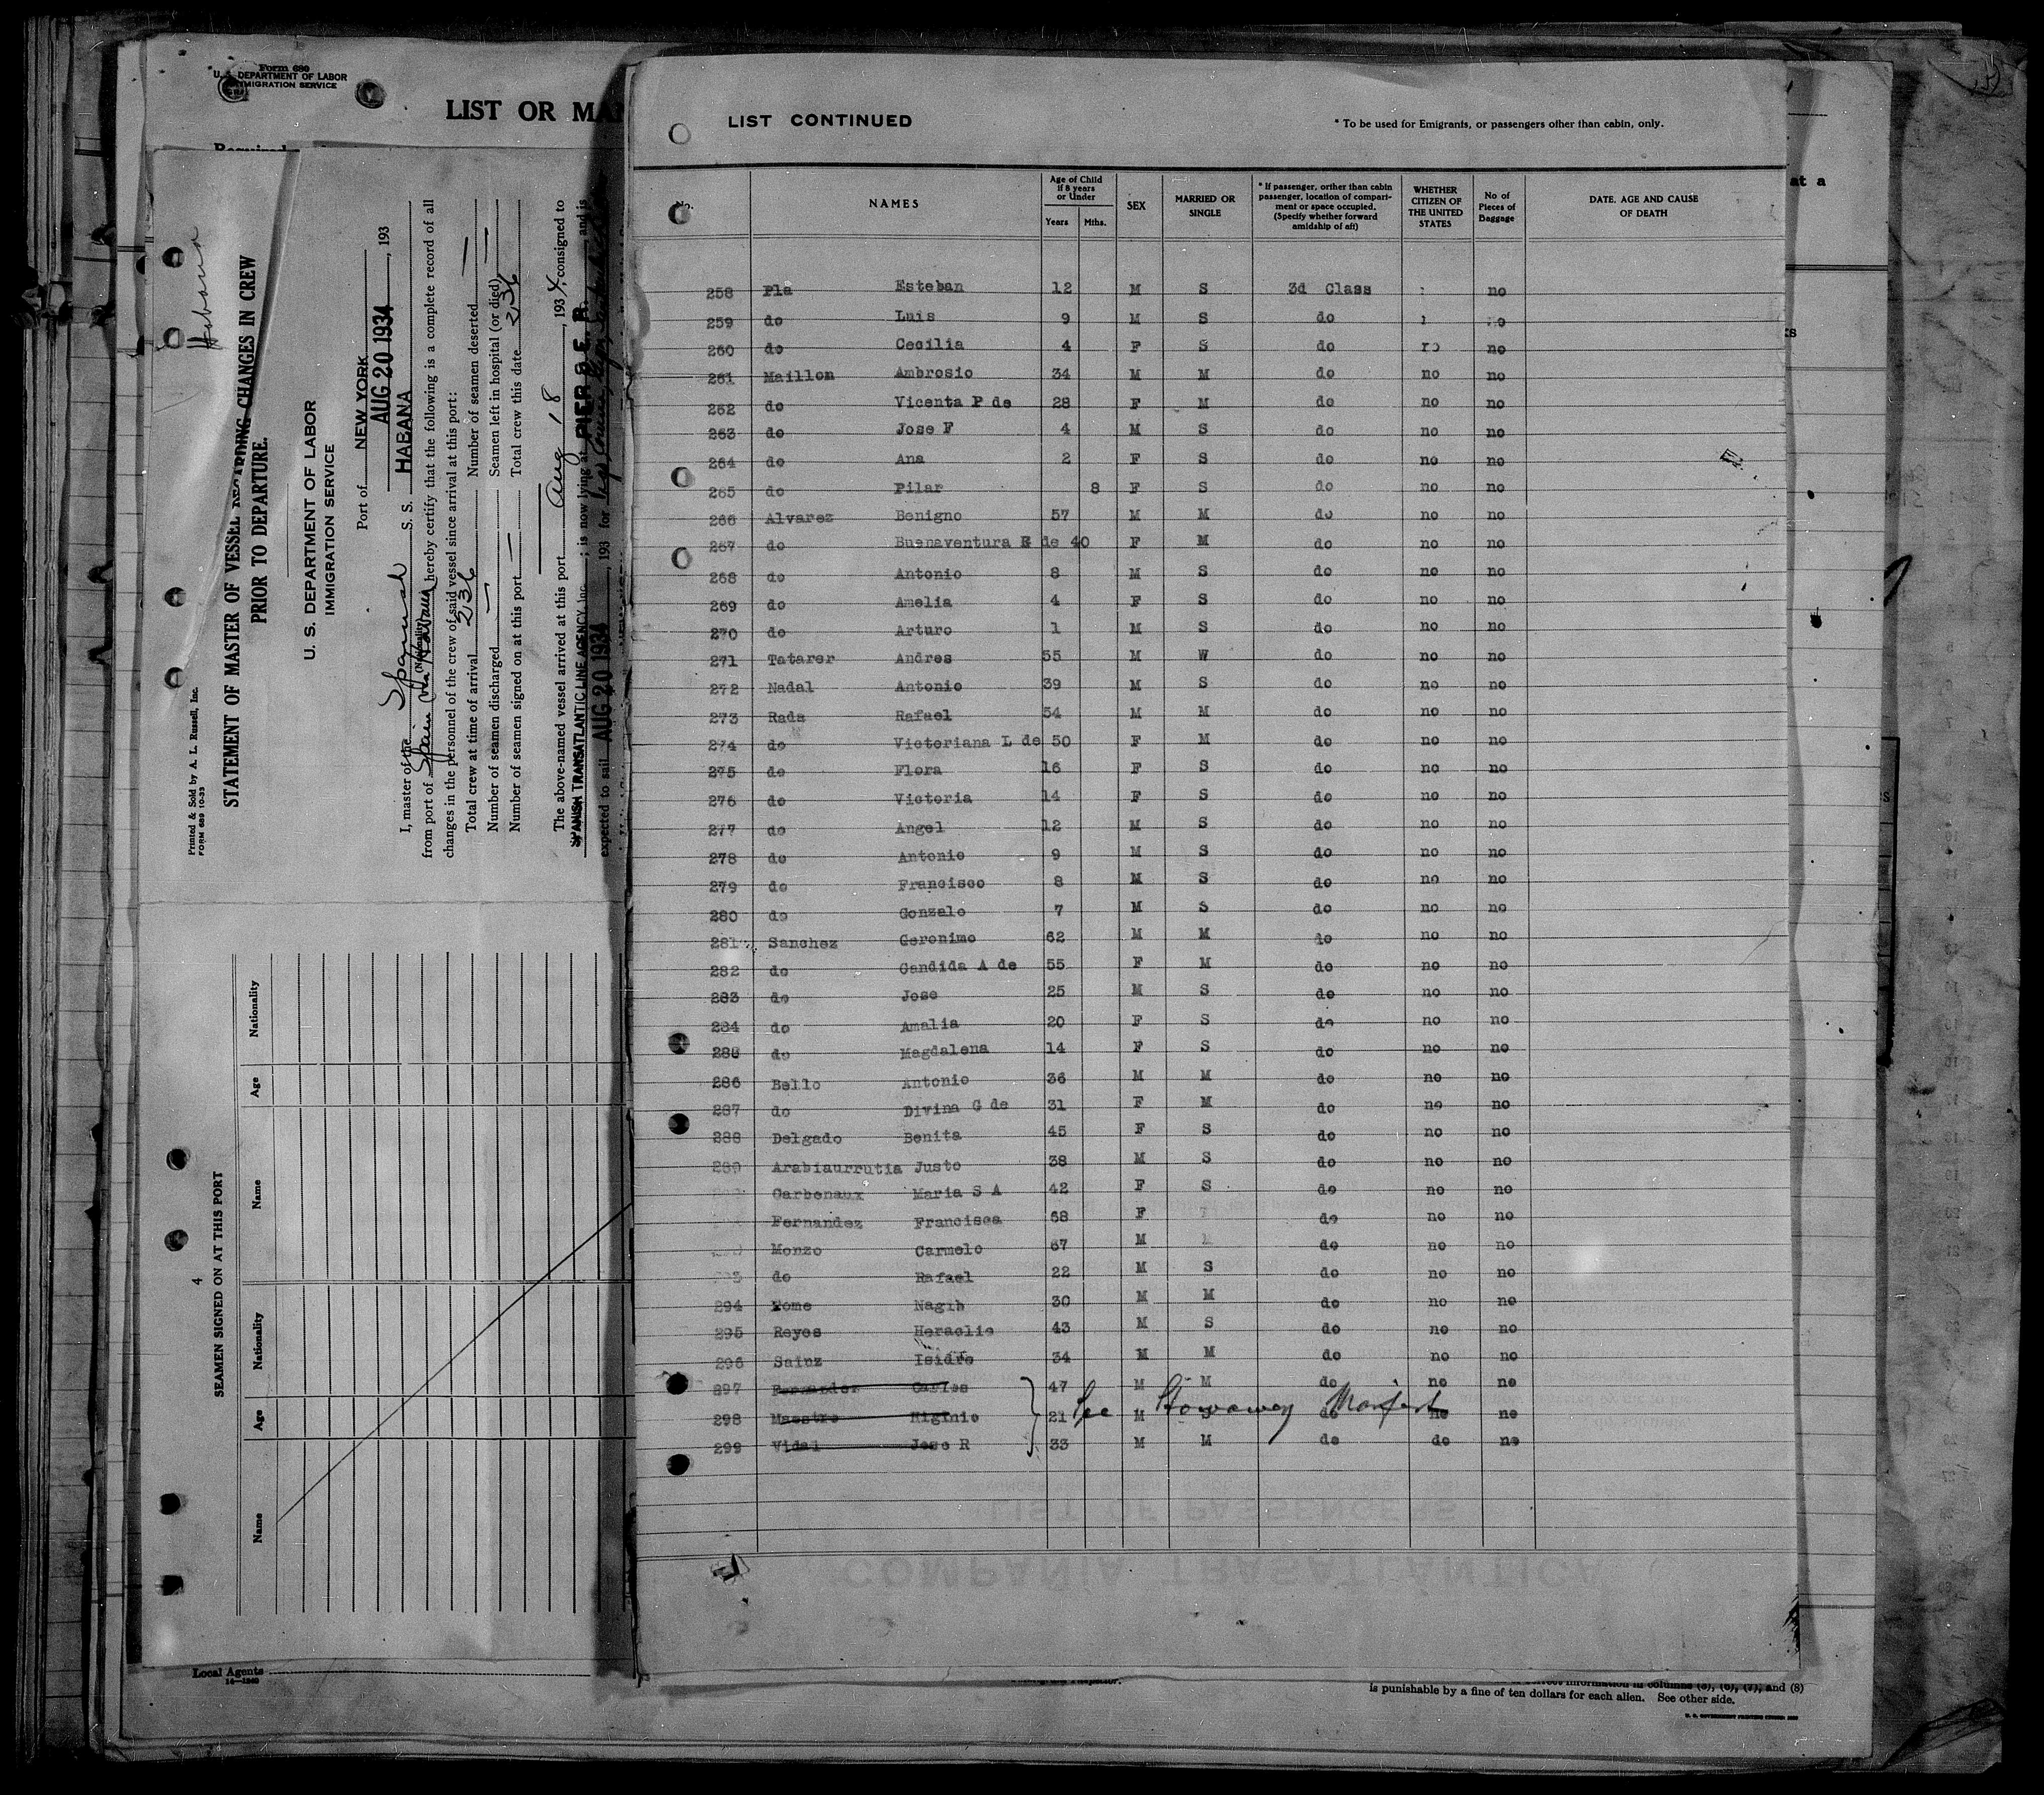 Form 680
U. S. DEPARTMENT OF LABOR
IMMIGRATION SERVICE
LIST OR MA
Required
Habana
Printed & Sold by A. L. Russell, Inc.
FORM 689 10-33
STATEMENT OF MASTER OF VESSEL REGARDING CHANGES IN CREW
PRIOR TO DEPARTURE.
U. S. DEPARTMENT OF LABOR
IMMIGRATION SERVICE
Port of NEW YORK
AUG 20 1934, 193
I, master of the Spanish S. S. HABANA
(Nationality)
from port of Spain via Havana hereby certify that the following is a complete record of all
changes in the personnel of the crew of said vessel since arrival at this port:
Total crew at time of arrival 236 Number of seamen deserted —
Number of seamen discharged — Seamen left in hospital (or died) —
Number of seamen signed on at this port — Total crew this date 236
The above-named vessel arrived at this port Aug 18, 1934, consigned to
SPANISH TRANSATLANTIC LINE AGENCY, Inc.; is now lying at PIER 8 E. R. and is
expected to sail AUG 20 1934, 193 for
4
SEAMEN SIGNED ON AT THIS PORT
Name Age Nationality Name Age Nationality
Local Agents
14—1240
LIST CONTINUED
* To be used for Emigrants, or passengers other than cabin, only.
NAMES
Age of Child if 8 years or Under
Years Mths.
SEX
MARRIED OR SINGLE
* If passenger, orther than cabin passenger, location of compartiment or space occupied. (Specify whether forward amidship of aft)
WHETHER CITIZEN OF THE UNITED STATES
No of Pieces of Baggage
DATE. AGE AND CAUSE OF DEATH
258 Pla Esteban 12 M S 3d Class no
259 do Luis 9 M S do no
260 do Cecilia 4 F S do no no
261 Maillon Ambrosio 34 M M do no no
262 do Vicenta P de 28 F M do no no
263 do Jose F 4 M S do no no
264 do Ana 2 F S do no no
265 do Pilar 8 F S do no no
266 Alvarez Benigno 57 M M do no no
267 do Buenaventura E de 40 F M do no no
268 do Antonio 8 M S do no no
269 do Amelia 4 F S do no no
270 do Arturo 1 M S do no no
271 Tatarer Andres 55 M W do no no
272 Nadal Antonio 39 M S do no no
273 Rada Rafael 54 M M do no no
274 do Victoriana L de 50 F M do no no
275 do Flora 16 F S do no no
276 do Victoria 14 F S do no no
277 do Angel 12 M S do no no
278 do Antonio 9 M S do no no
279 do Francisco 8 M S do no no
280 do Gonzalo 7 M S do no no
281 Sanchez Geronimo 62 M M do no no
282 do Candida A de 55 F M do no no
283 do Jose 25 M S do no no
284 do Amalia 20 F S do no no
285 do Magdalena 14 F S do no no
286 Bello Antonio 36 M M do no no
287 do Divina G de 31 F M do no no
288 Delgado Benita 45 F S do no no
289 Arabiaurrutia Justo 38 M S do no no
Carbonaux Maria S A 42 F S do no no
Fernandez Francisca 68 F do no no
Monzo Carmelo 67 M do no no
do Rafael 22 M S do no no
294 Tome Nagib 30 M M do no no
295 Reyes Heraclio 43 M S do no no
296 Sainz Isidro 34 M M do no no
297 Fernandez Carlos 47 M M do no no
298 Maestro Higinio 21 M S do no no
See Stowaway Manifest
299 Vidal Jose R 33 M M do do no
LIST OF PASSENGERS
COMPAÑIA TRASATLANTICA
at a
is punishable by a fine of ten dollars for each alien. See other side.